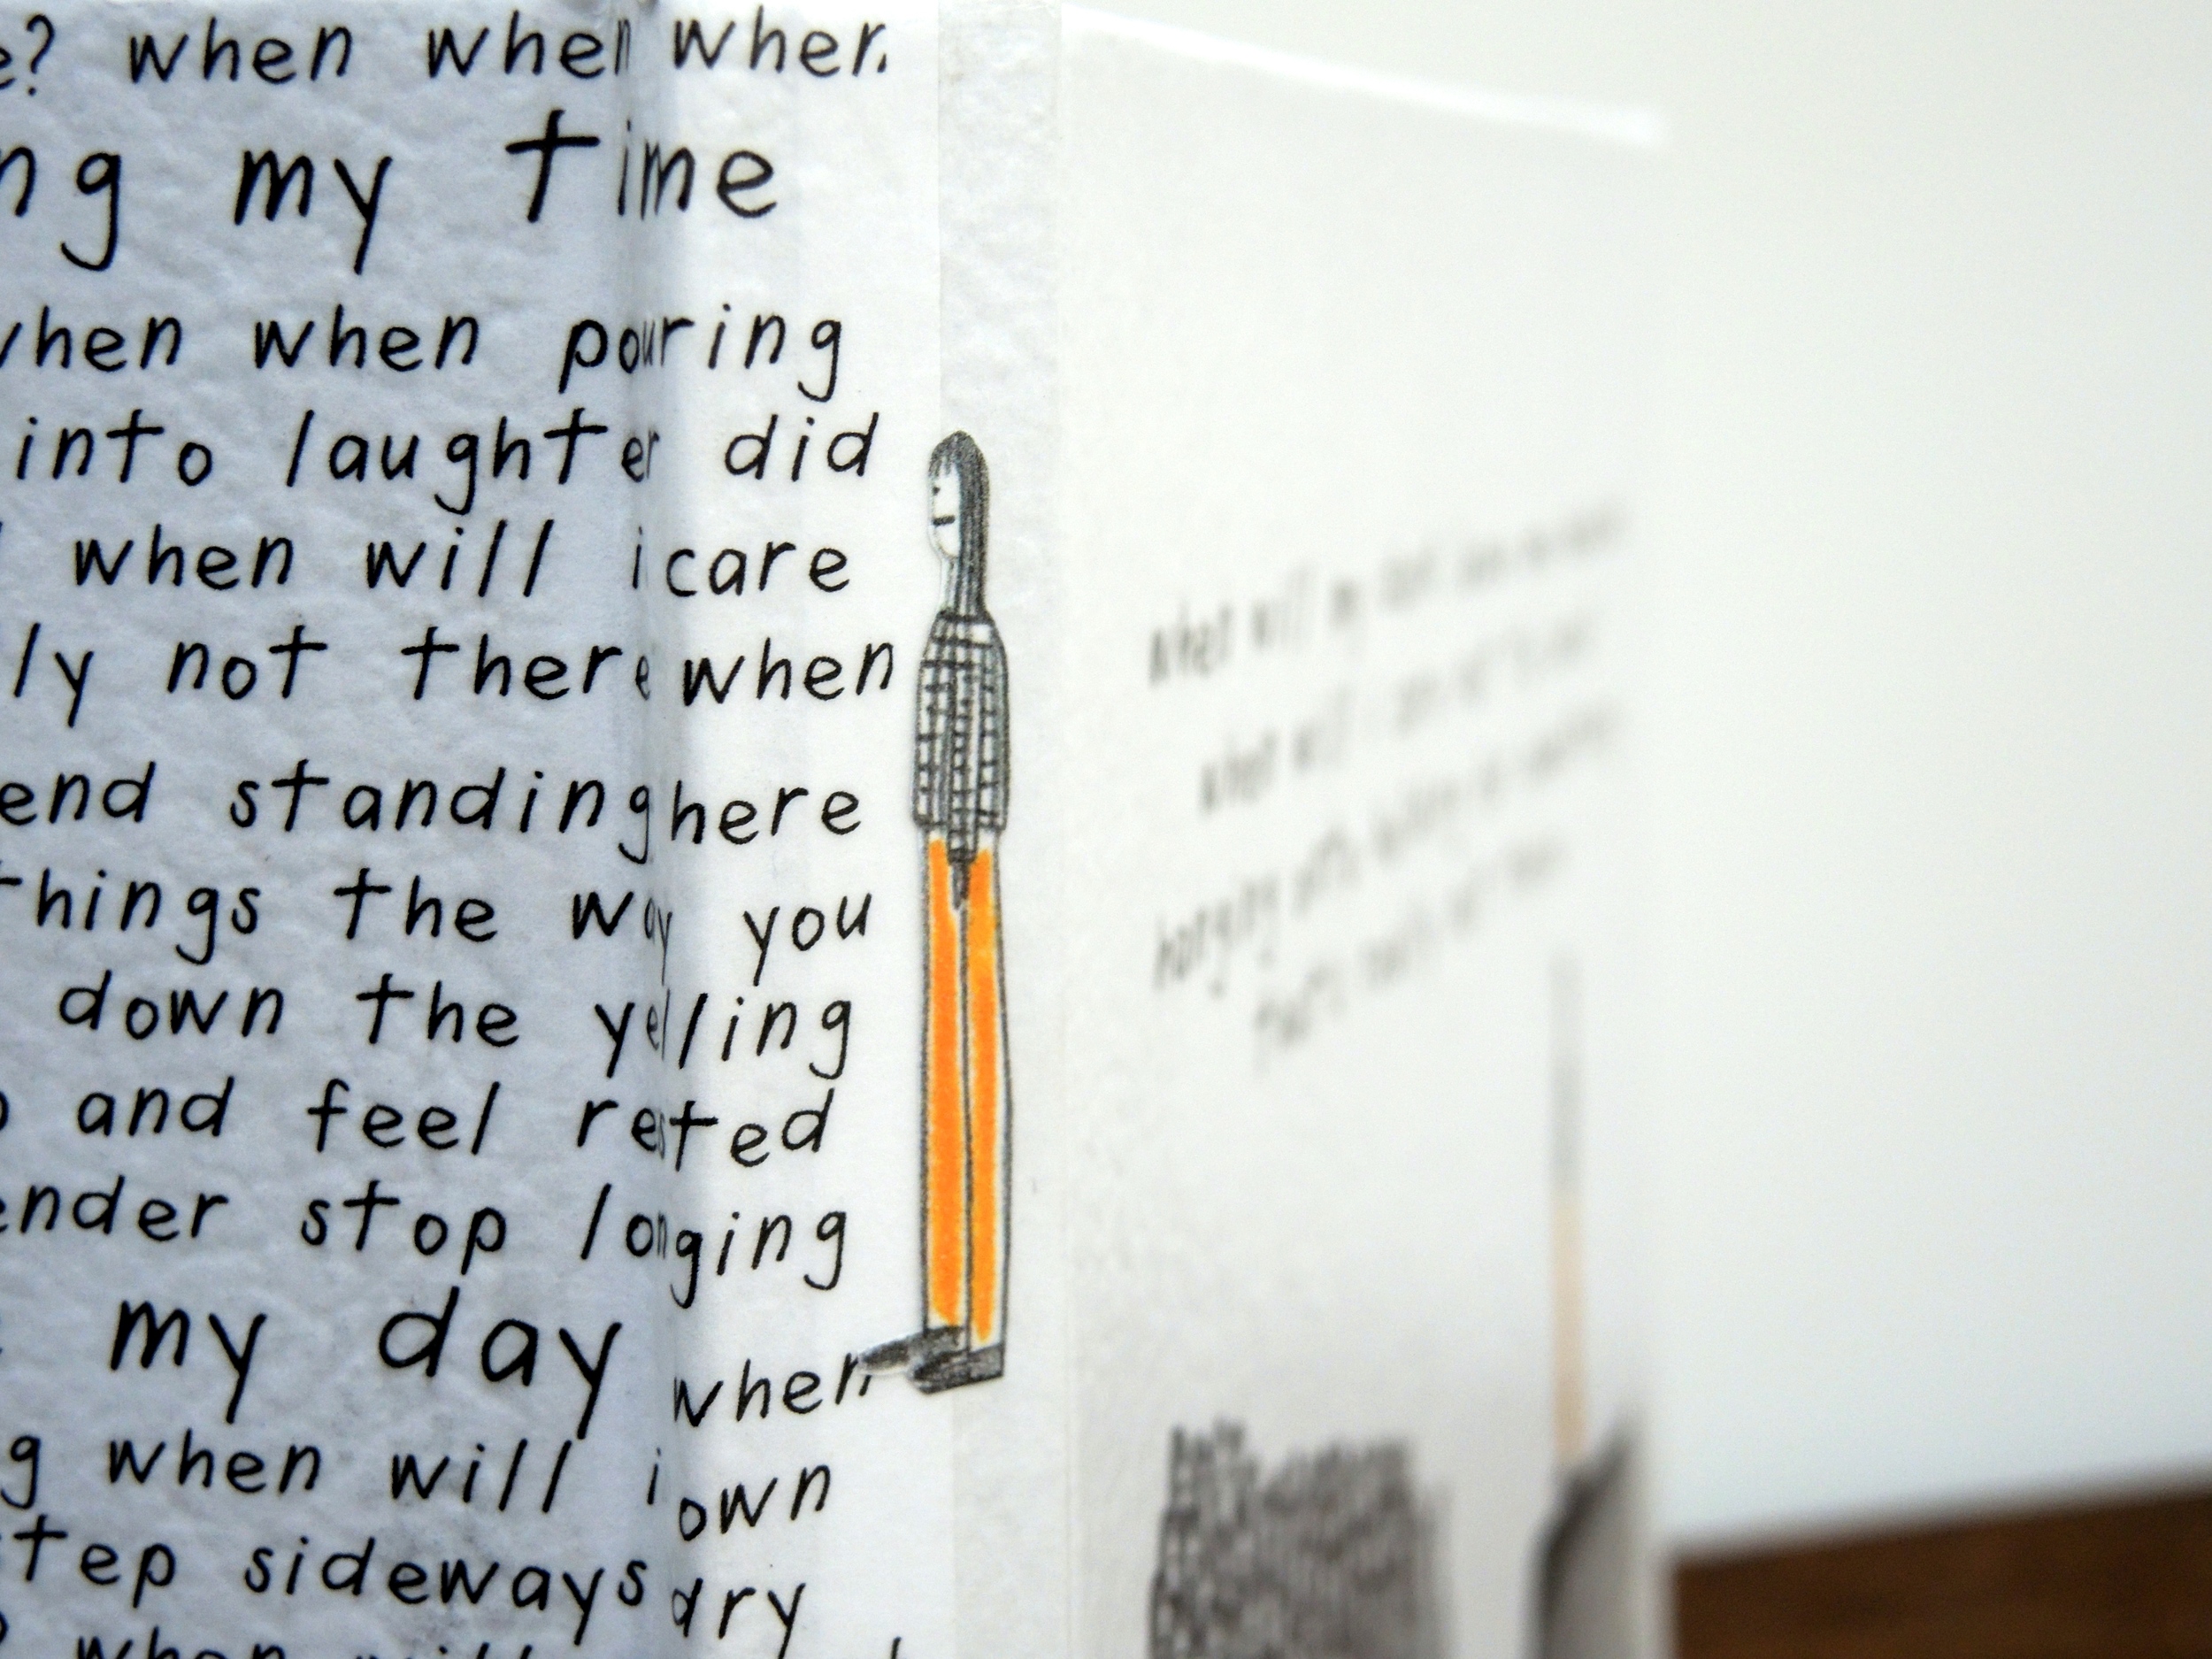 e? when when when
ng my time
when when pouring
into laughter did
when will i care
ly not there when
end standing here
things the way you
down the yelling
and feel rested
ender stop longing
my day when
g when will i own
step sideways dry
when will
when will my
when will i
hanging